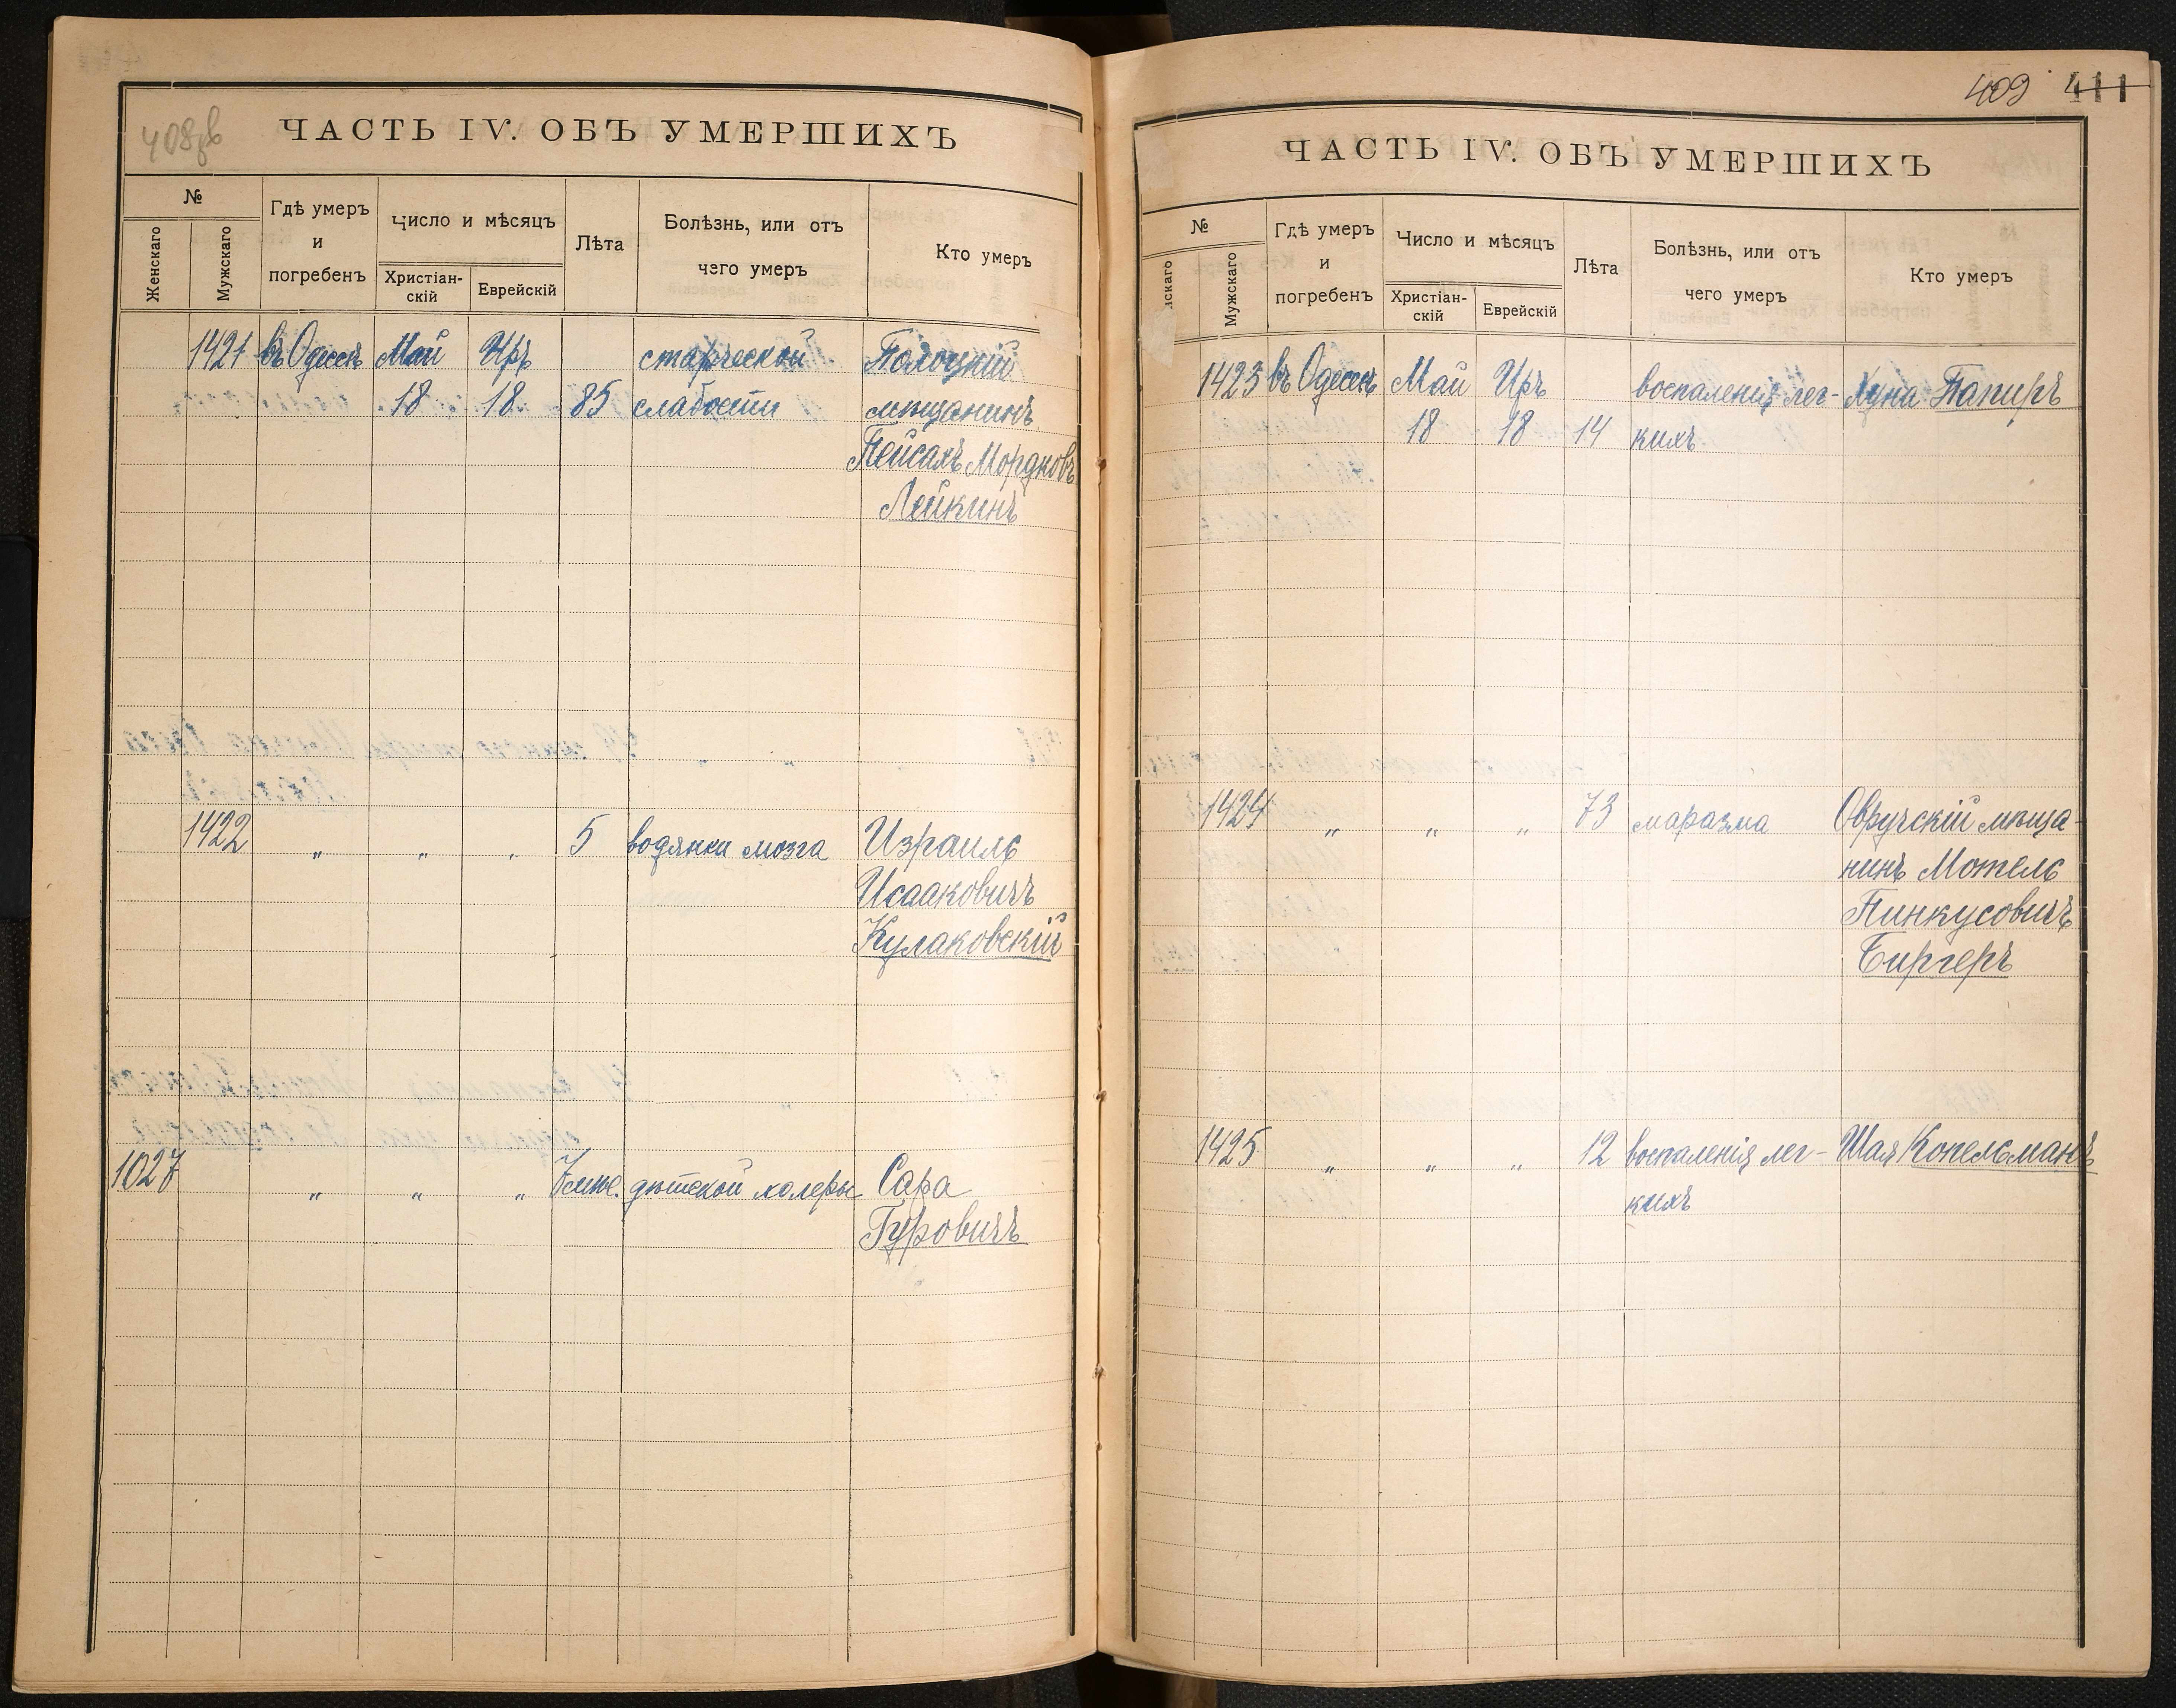 408зв
ЧАСТЬ IV. ОБЪ УМЕРШИХЪ
№
Женскаго
Мужскаго
Гдѣ умеръ
и
погребенъ
Число и мѣсяцъ
Христіан-
скій
Еврейскій
Лѣта
Болѣзнь, или отъ
чего умеръ
Кто умеръ
1421 въ Одессѣ Май Иръ старческой Полоцкій
18 18 85 слабости мѣщанинъ
Пейсахъ Мордковъ
Лейкинъ
1422 „ „ „ 5 водянки мозга Израиль
Исааковичъ
Кулаковскій
1027 „ „ „ 7 мѣс. дѣтской холеры Сара
Гуровичъ
409 411
ЧАСТЬ IV. ОБЪ УМЕРШИХЪ
№
нскаго
Мужскаго
Гдѣ умеръ
и
погребенъ
Число и мѣсяцъ
Христіан-
скій
Еврейскій
Лѣта
Болѣзнь, или отъ
чего умеръ
Кто умеръ
1423 въ Одессѣ Май Иръ воспаленія лег- Хуна Папиръ
18 18 14 кихъ
1424 „ „ „ 73 маразма Овручскій мѣща-
нинъ Мотель
Пинкусовичъ
Биргеръ
1425 „ „ „ 12 воспаленія лег- Шая Копельманъ
кихъ